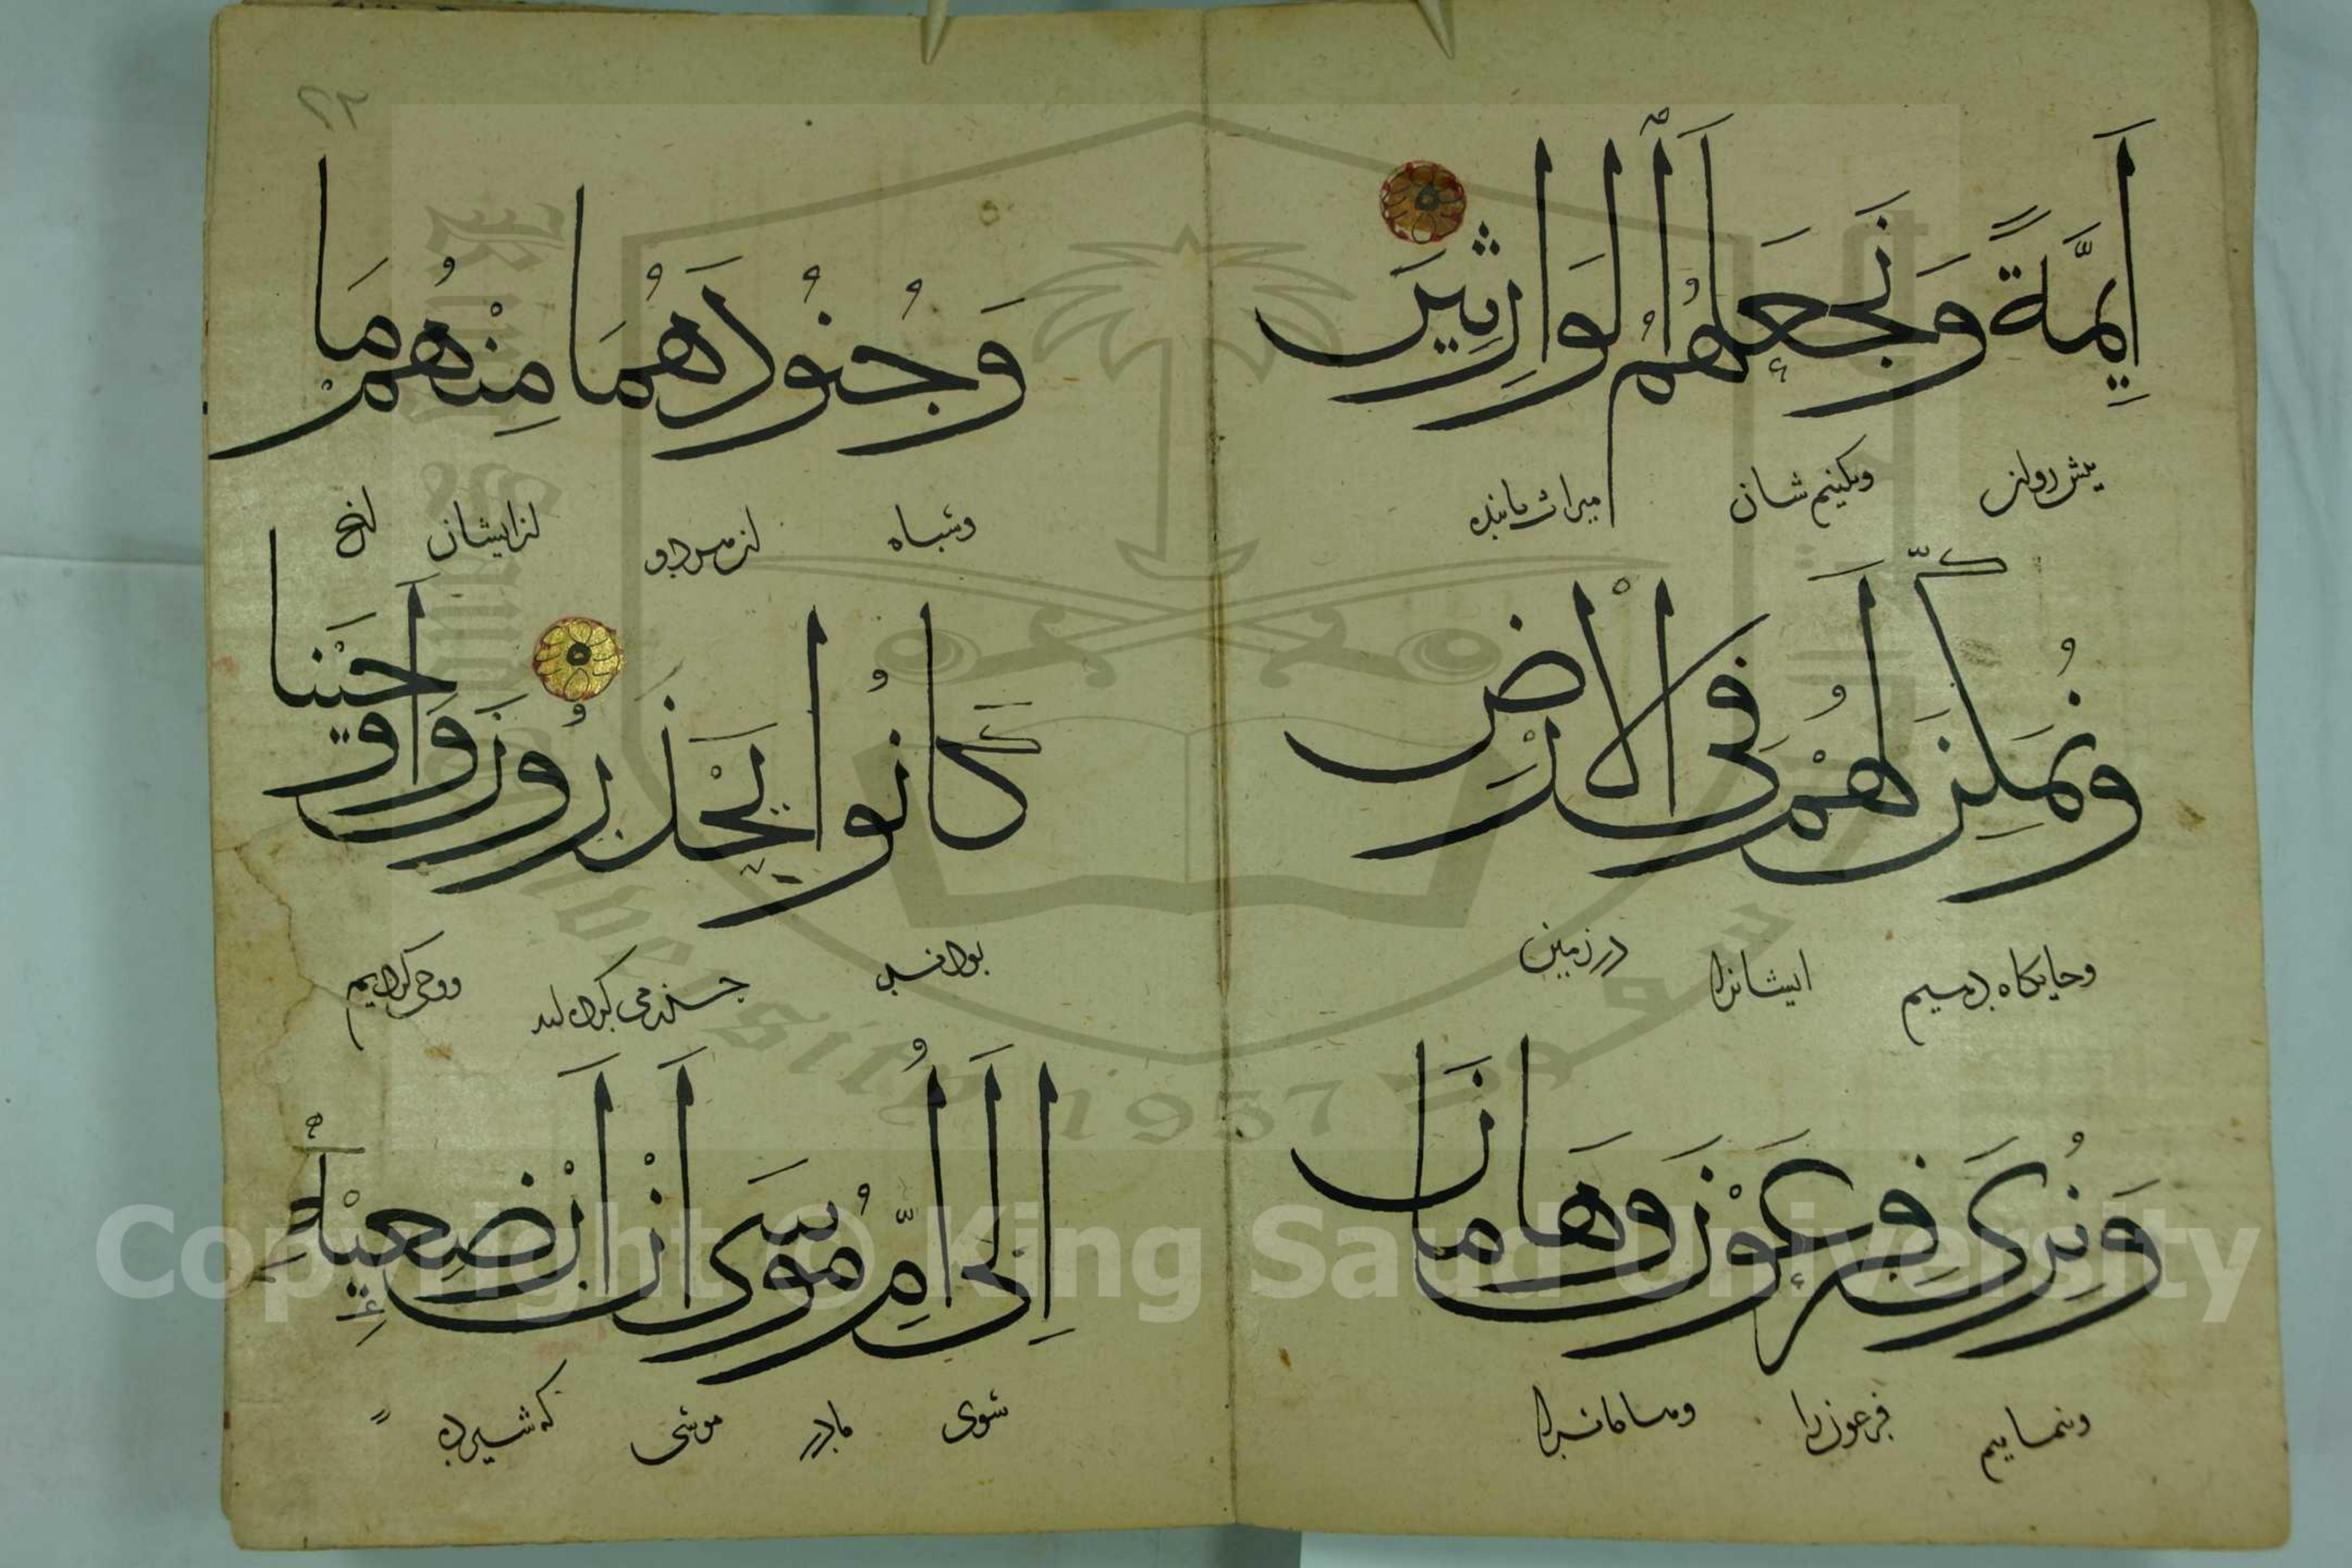 أَيِمَّةً وَنَجْعَلَهُمُ الْوَارِثِينَ
پیش روان وبکنیم شان میراث یابنده
وَنُمَكِّنَ لَهُمْ فِي الْأَرْضِ
وجایگاه دهیم ایشانرا در زمین
وَنُرِيَ فِرْعَوْنَ وَهَامَانَ
وبنماییم فرعون را وهامانرا
وَجُنُودَهُمَا مِنْهُمْ مَا
وسپاه از ایشان آنچ
كَانُوا يَحْذَرُونَ وَأَوْحَيْنَا
بودند می کردند ووحی کردیم
إِلَى أُمِّ مُوسَى أَنْ أَنْ أَرْضِعِيهِ
سوی مادر موسی که شیر ده
Copyright © King Saud University
1957